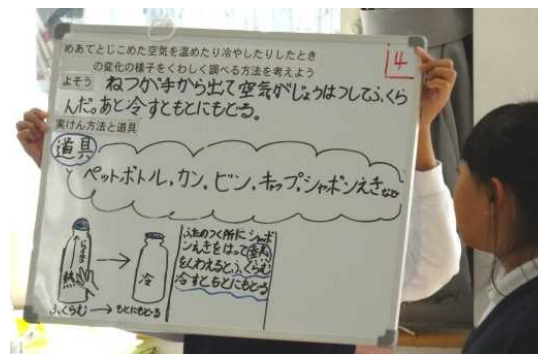 めあてとじこめた空気を温めたり冷やしたりしたとき
の変化の様子をくわしく調べる方法を考えよう
4
よそう ねつが手から出て空気がじょうはつしてふくら
んだ。あと冷すともとにもどる。
実けん方法と道具
道具
ペットボトル、カン、ビン、キャップ、シャボンえきなど
熱
冷
ふくらむ → もとにもどる
ふたのつく所にシャボ
ンえきをはって空気
をくわえると、ふくらむ
冷すともとにもどる